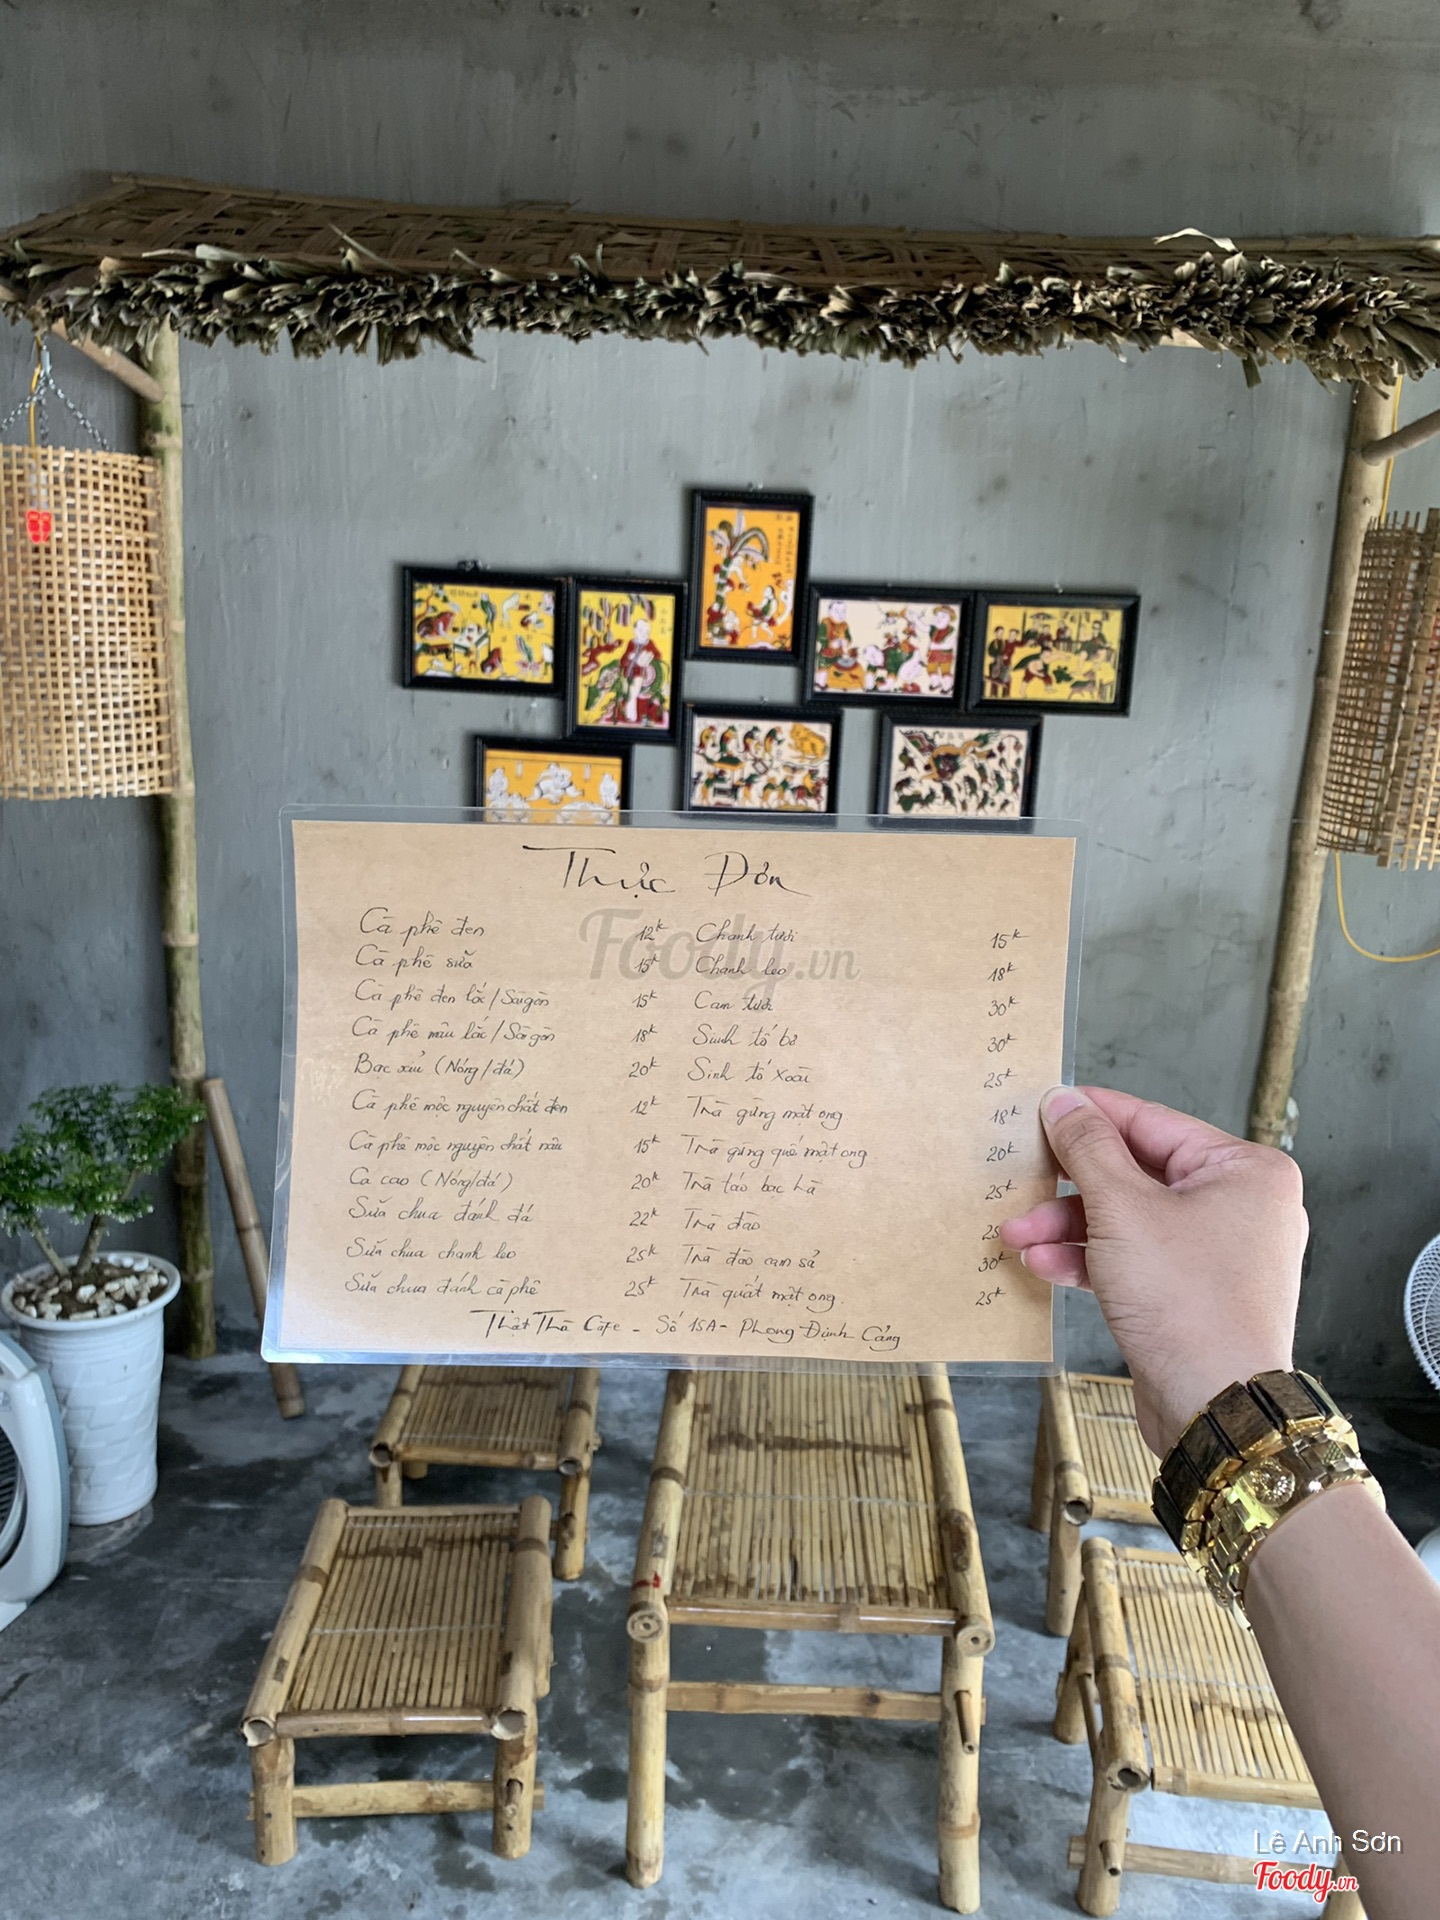 Thực Đơn
Cà phê đen 12k
Cà phê sữa 15k
Cà phê đen lắc/Sàigòn 15k
Cà phê nâu lắc/Sàigòn 18k
Bạc xỉu (Nóng/đá) 20k
Cà phê mộc nguyên chất đen 12k
Cà phê mộc nguyên chất nâu 15k
Ca cao (Nóng/đá) 20k
Sữa chua đánh đá 22k
Sữa chua chanh leo 25k
Sữa chua đánh cà phê 25k
Chanh tươi 15k
Chanh leo 18k
Cam tươi 30k
Sinh tố bơ 30k
Sinh tố xoài 25k
Trà gừng mật ong 18k
Trà gừng quế mật ong 20k
Trà táo bạc hà 25k
Trà đào 25
Trà đào cam sả 30k
Trà quất mật ong. 25k
Thật Thà Cafe - Số 15A - Phong Định Cảng
Foody.vn
Lê Anh Sơn
Foody.vn